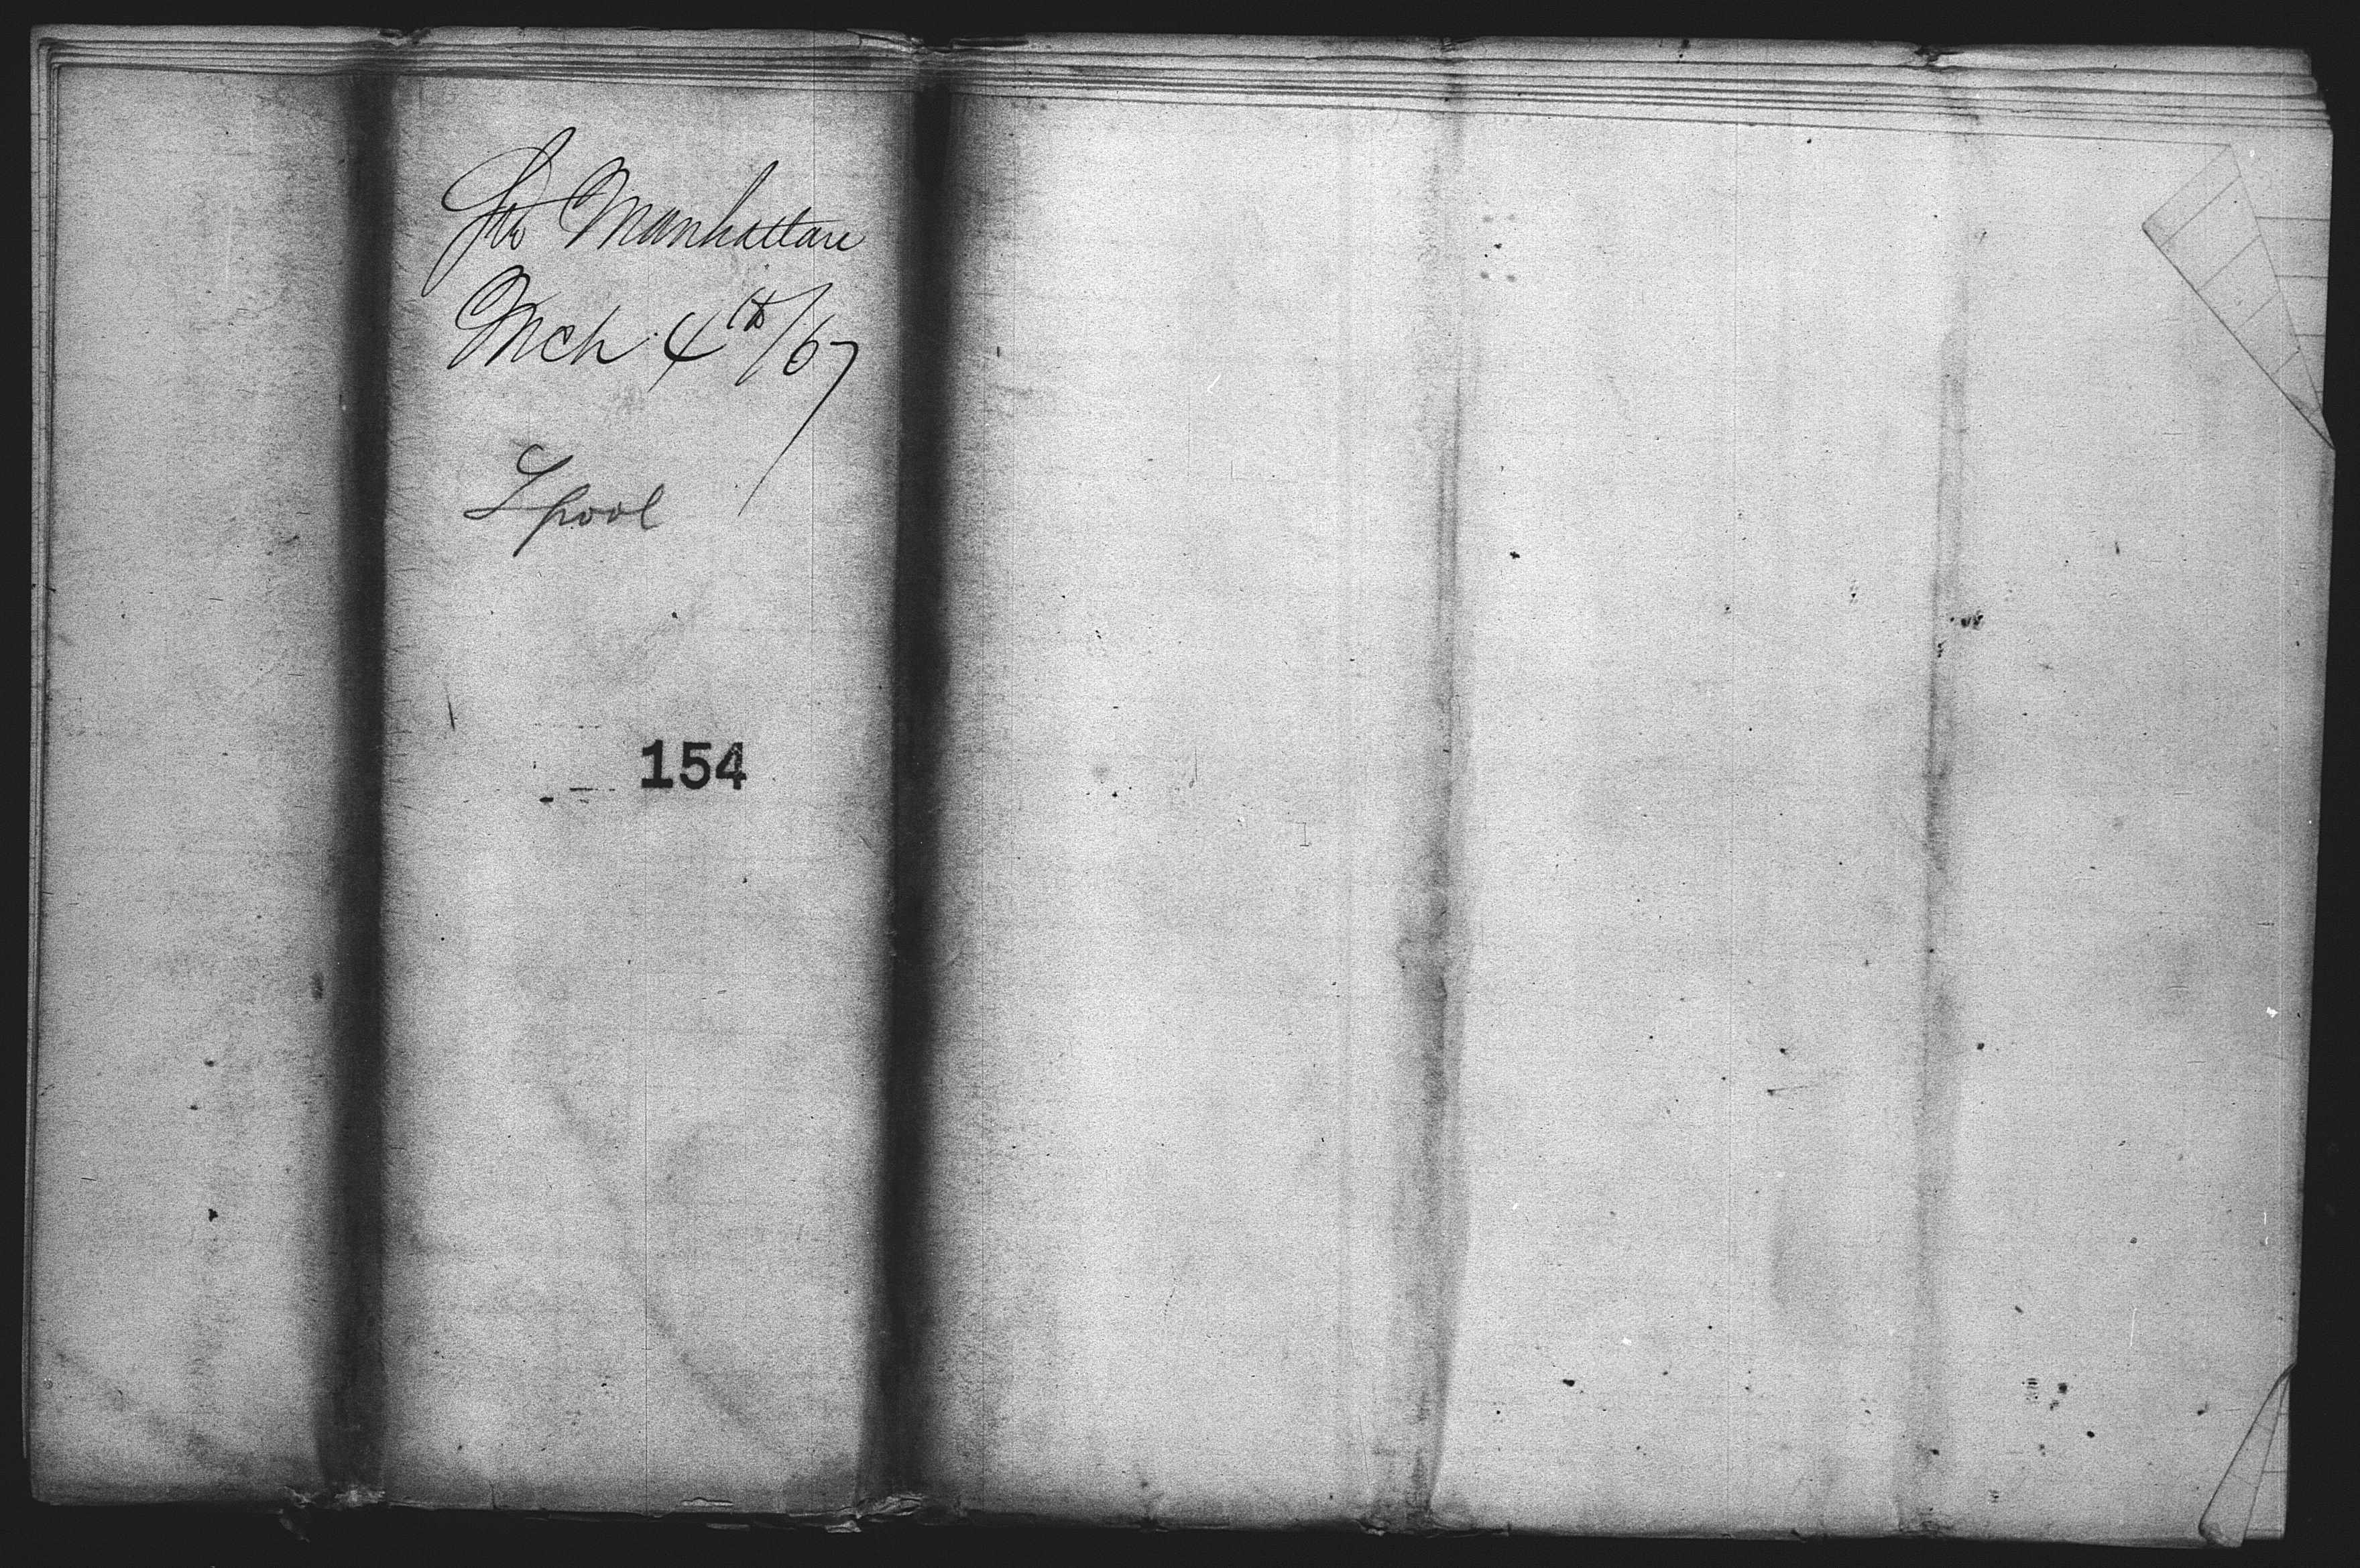 Str Manhattan
Mch 4th/67
Lpool
154